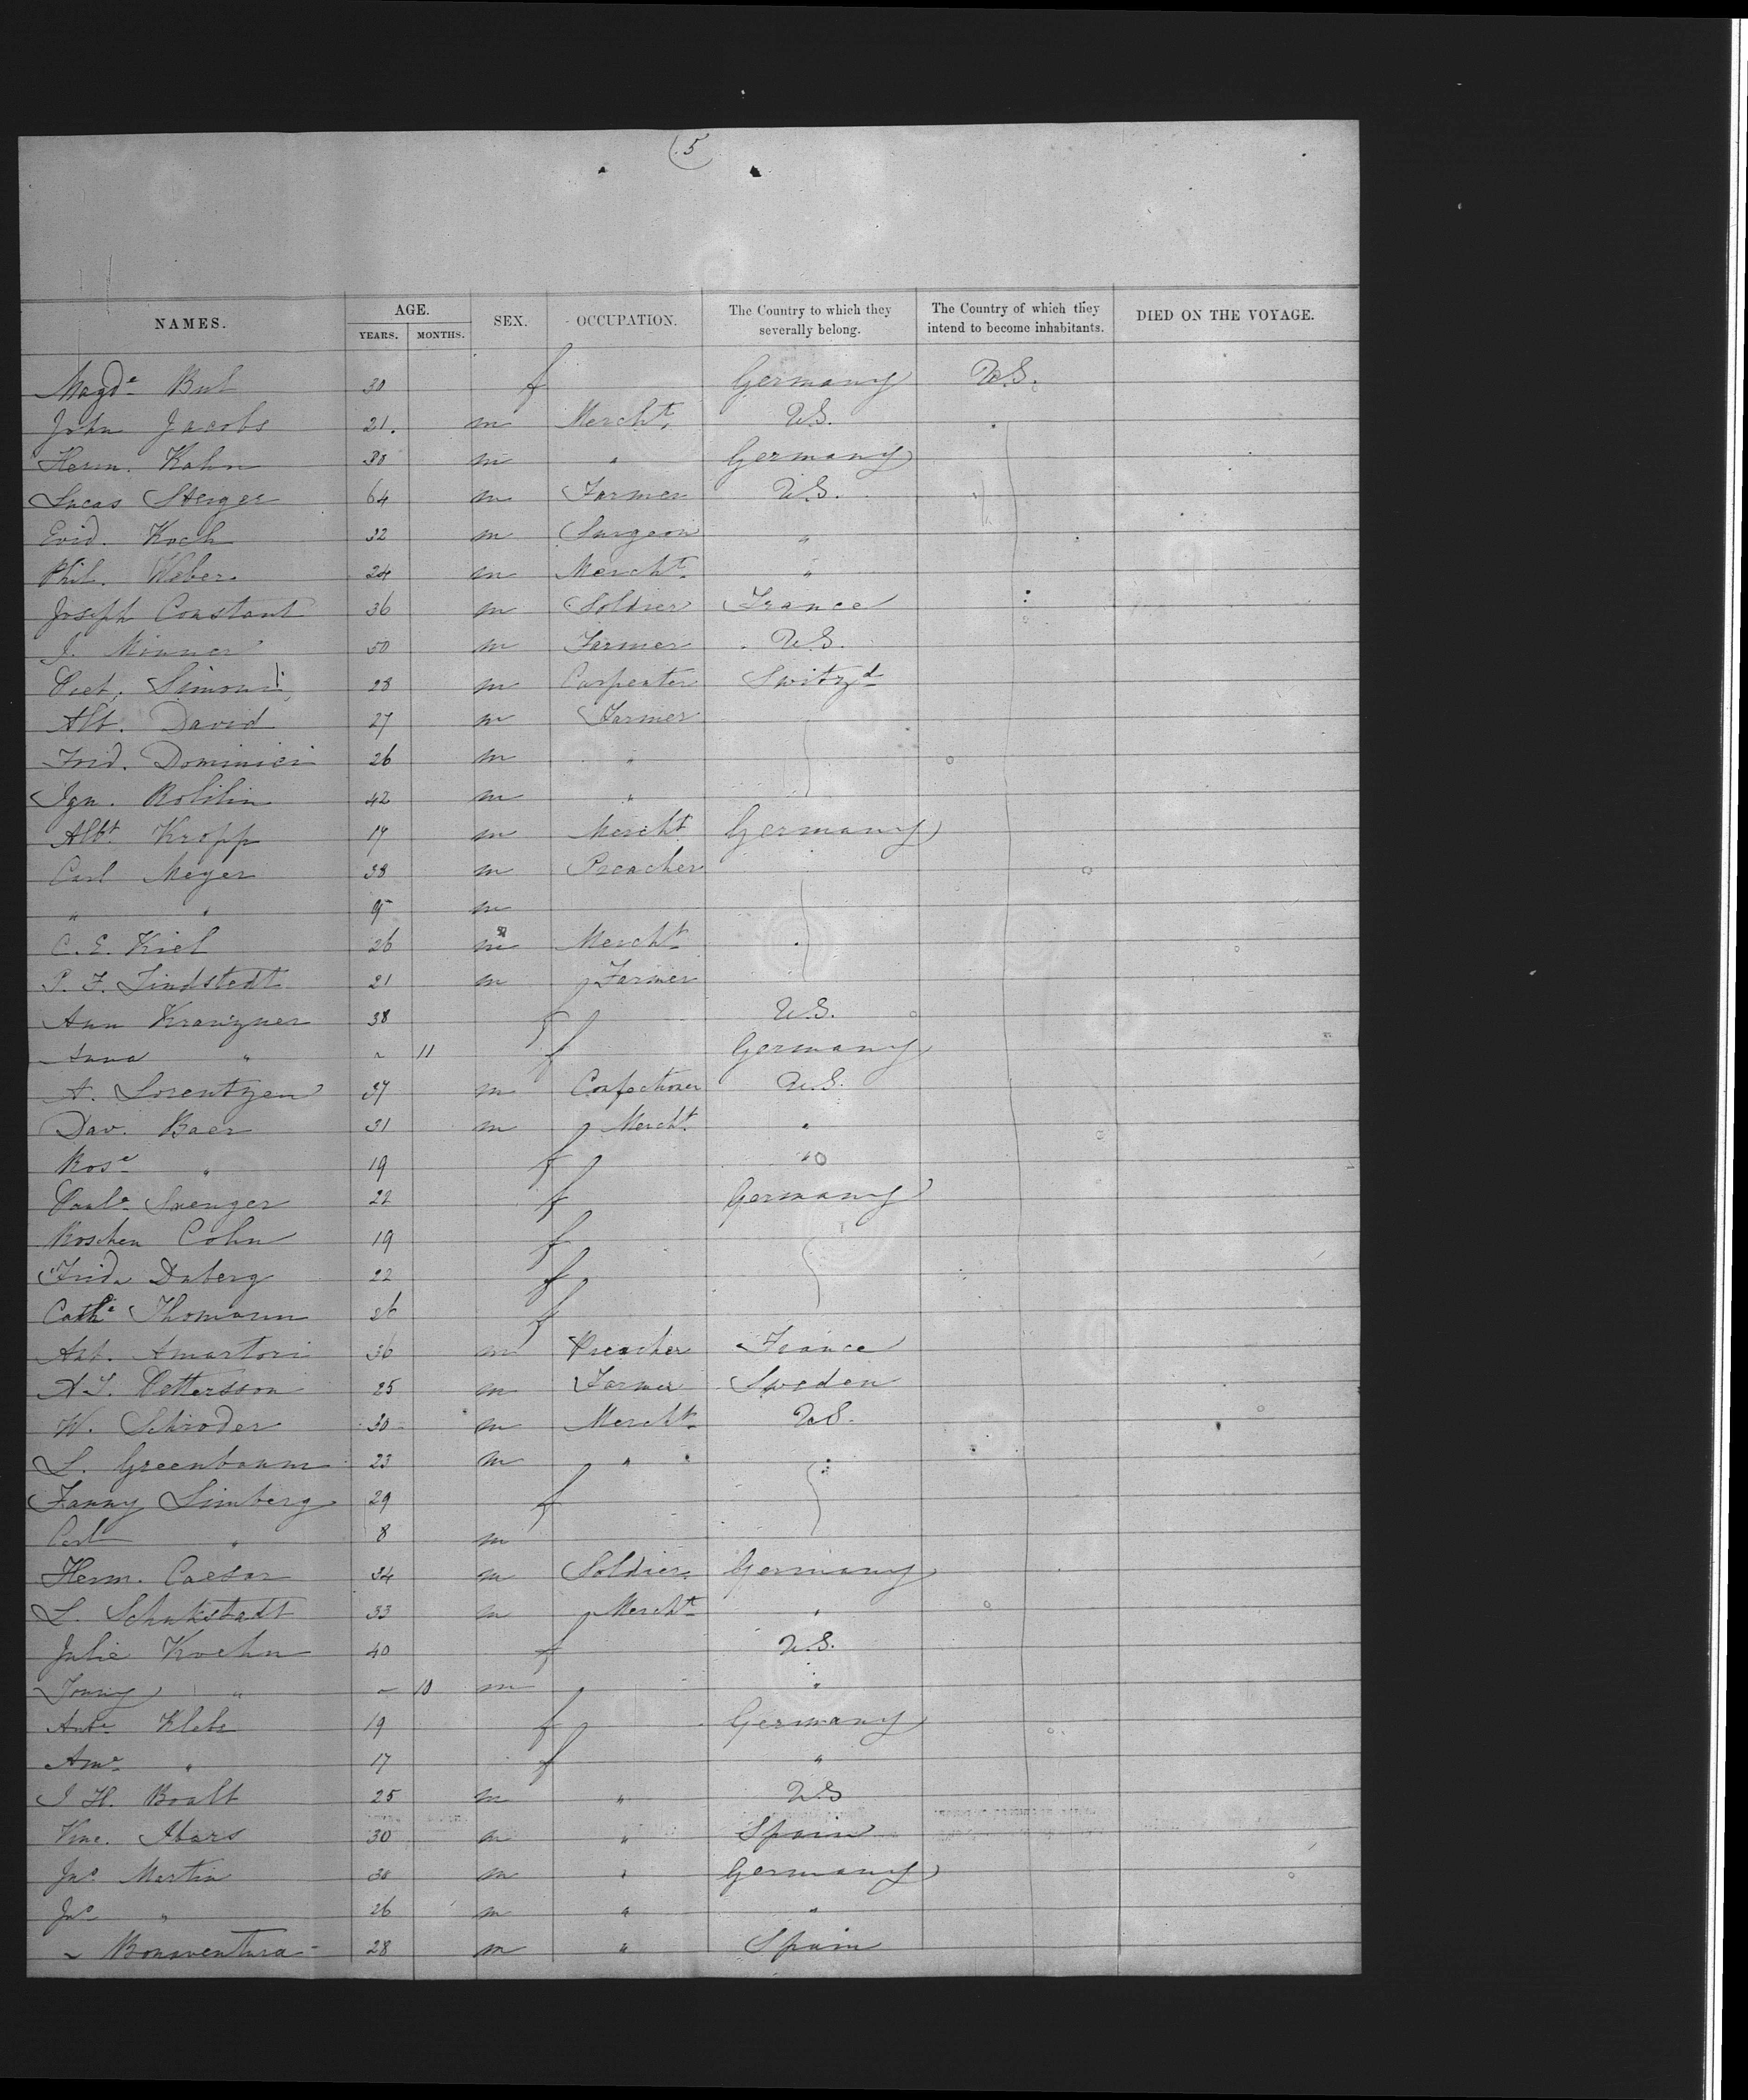 5
NAMES. AGE. YEARS. MONTHS. SEX. OCCUPATION. The Country to which they severally belong. The Country of which they intend to become inhabitants. DIED ON THE VOYAGE.
Magde 30 f Germany U.S.
John Jacobs 21. m Mercht. U.S.
Herm. Kahn 30 m " Germany
Lucas Steiger 64 m Farmer U.S.
Evid. Koch 32 m Surgeon "
Phil. Weber. 24 m Mercht "
Joseph Constant 36 m Soldier France
J. Minner 50 m Farmer U.S.
Simoni 28 m Carpenter Switzd
Alb. David 27 m Farmer
Frid. Dominici 26 m "
Ign. 42 m "
Albt Kropp 19 m Mercht Germany
Carl Meyer 38 m Preacher
" " 9 m
C. E. Kiel 26 m Mercht
P. F. Lindstedt 21 m Farmer
Ann 38 f U.S.
Anna " " 11 f Germany
A. Lorentzen 37 m Confectioner U.S.
Dav. Baer 31 m Mercht "
Rose " 19 f "
Paule 22 f Germany
Roschen Cohn 19 f
Frida Daberg 22 f
Cathe Thomann 26 f
Ant. Amartori 36 m Preacher France
A. Pettersson 25 m Farmer Sweden
W. Schroder 30 m Mercht U.S.
L. Greenbaum 23 m "
Fanny Limberg 29 f
Carl " 8 m
Herm. Caesar 34 m Soldier Germany
L. Schukstadt 33 m Mercht "
Julie Koehn 40 f U.S.
" " 10 m "
Klebe 19 f Germany
" 17 f "
J H. Boalt 25 m " U.S
Vinc. Ibars 30 m " Spain
Jno Martin 30 m " Germany
Jno " 26 m " "
" Bonaventura 28 m " Spain